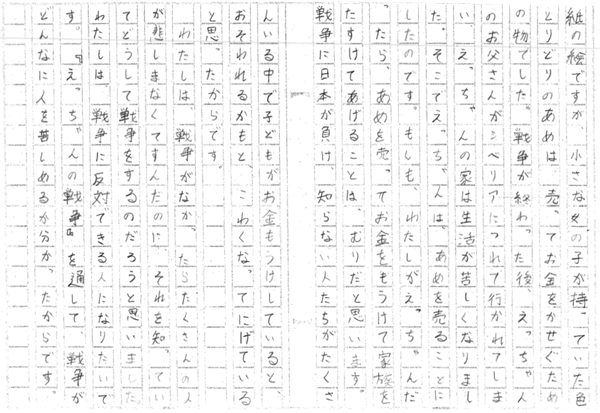 紙の絵ですが、小さな女の子が持っていた色
とりどりのあめは、売ってお金をかせぐため
の物でした。戦争が終わった後、えっちゃん
のお父さんがシベリアにつれて行かれてしま
い、えっちゃんの家は生活が苦しくなりまし
た。そこでえっちゃんは、あめを売ることに
したのです。もしも、わたしがえっちゃんだ
ったら、あめを売ってお金をもうけて家族を
たすけてあげることは、むりだと思います。
戦争に日本が負け、知らない人たちがたくさ
んいる中で子どもがお金もうけしていると、
おそわれるかもと、こわくなってにげている
と思ったからです。
わたしは、戦争がなかったらたくさんの人
が悲しまなくてすんだのに、それを知ってい
てどうして戦争をするのだろうと思いました。
わたしは、戦争に反対できる人になりたいで
す。『えっちゃんの戦争』を通して、戦争が
どんなに人を苦しめるか分かったからです。